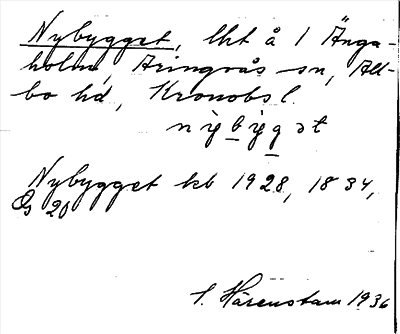 Nybygget, lht å 1 Änga-
holm, Aringsås sn, All-
bo hd, Kronobs l.
nẙbẙgət
Nybygget kb 1928, 1834,
GS 20
S. Härenstam 1936